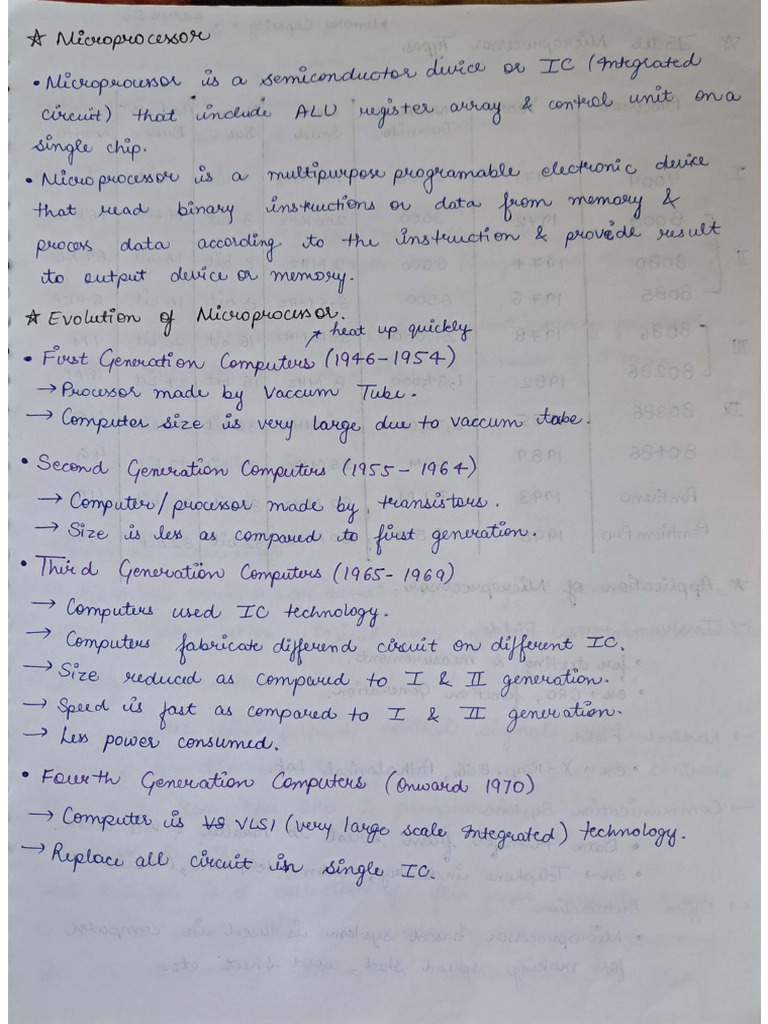 ☆ Microprocessor
• Microprocessor is a semiconductor device or IC (Integrated
circuit) that include ALU register array & control unit on a
single chip.
• Microprocessor is a multipurpose programable electronic device
that read binary instructions or data from memory &
process data according to the instruction & provide result
to output device or memory.
☆ Evolution of Microprocessor.
↗ heat up quickly
• First Generation Computers (1946-1954)
→ Processor made by Vaccum Tube.
→ Computer size is very large due to vaccum tabe.
• Second Generation Computers (1955-1964)
→ Computer/processor made by transistors.
→ Size is less as compared to first generation.
• Third Generation Computers (1965-1969)
→ Computers used IC technology.
→ Computers fabricate differend circuit on different IC.
→ Size reduced as compared to I & II generation.
→ Speed is fast as compared to I & II generation.
→ Less power consumed.
• Fourth Generation Computers (Onward 1970)
→ Computer is VLSI (very large scale Integrated) technology.
→ Replace all circuit in single IC.